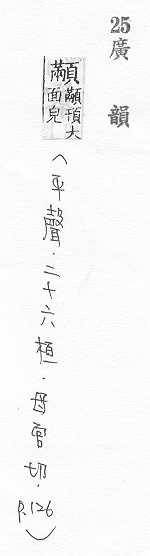 25廣韻
顢顢頇大
面皃
（平聲．二十六桓．母官切．P.126）